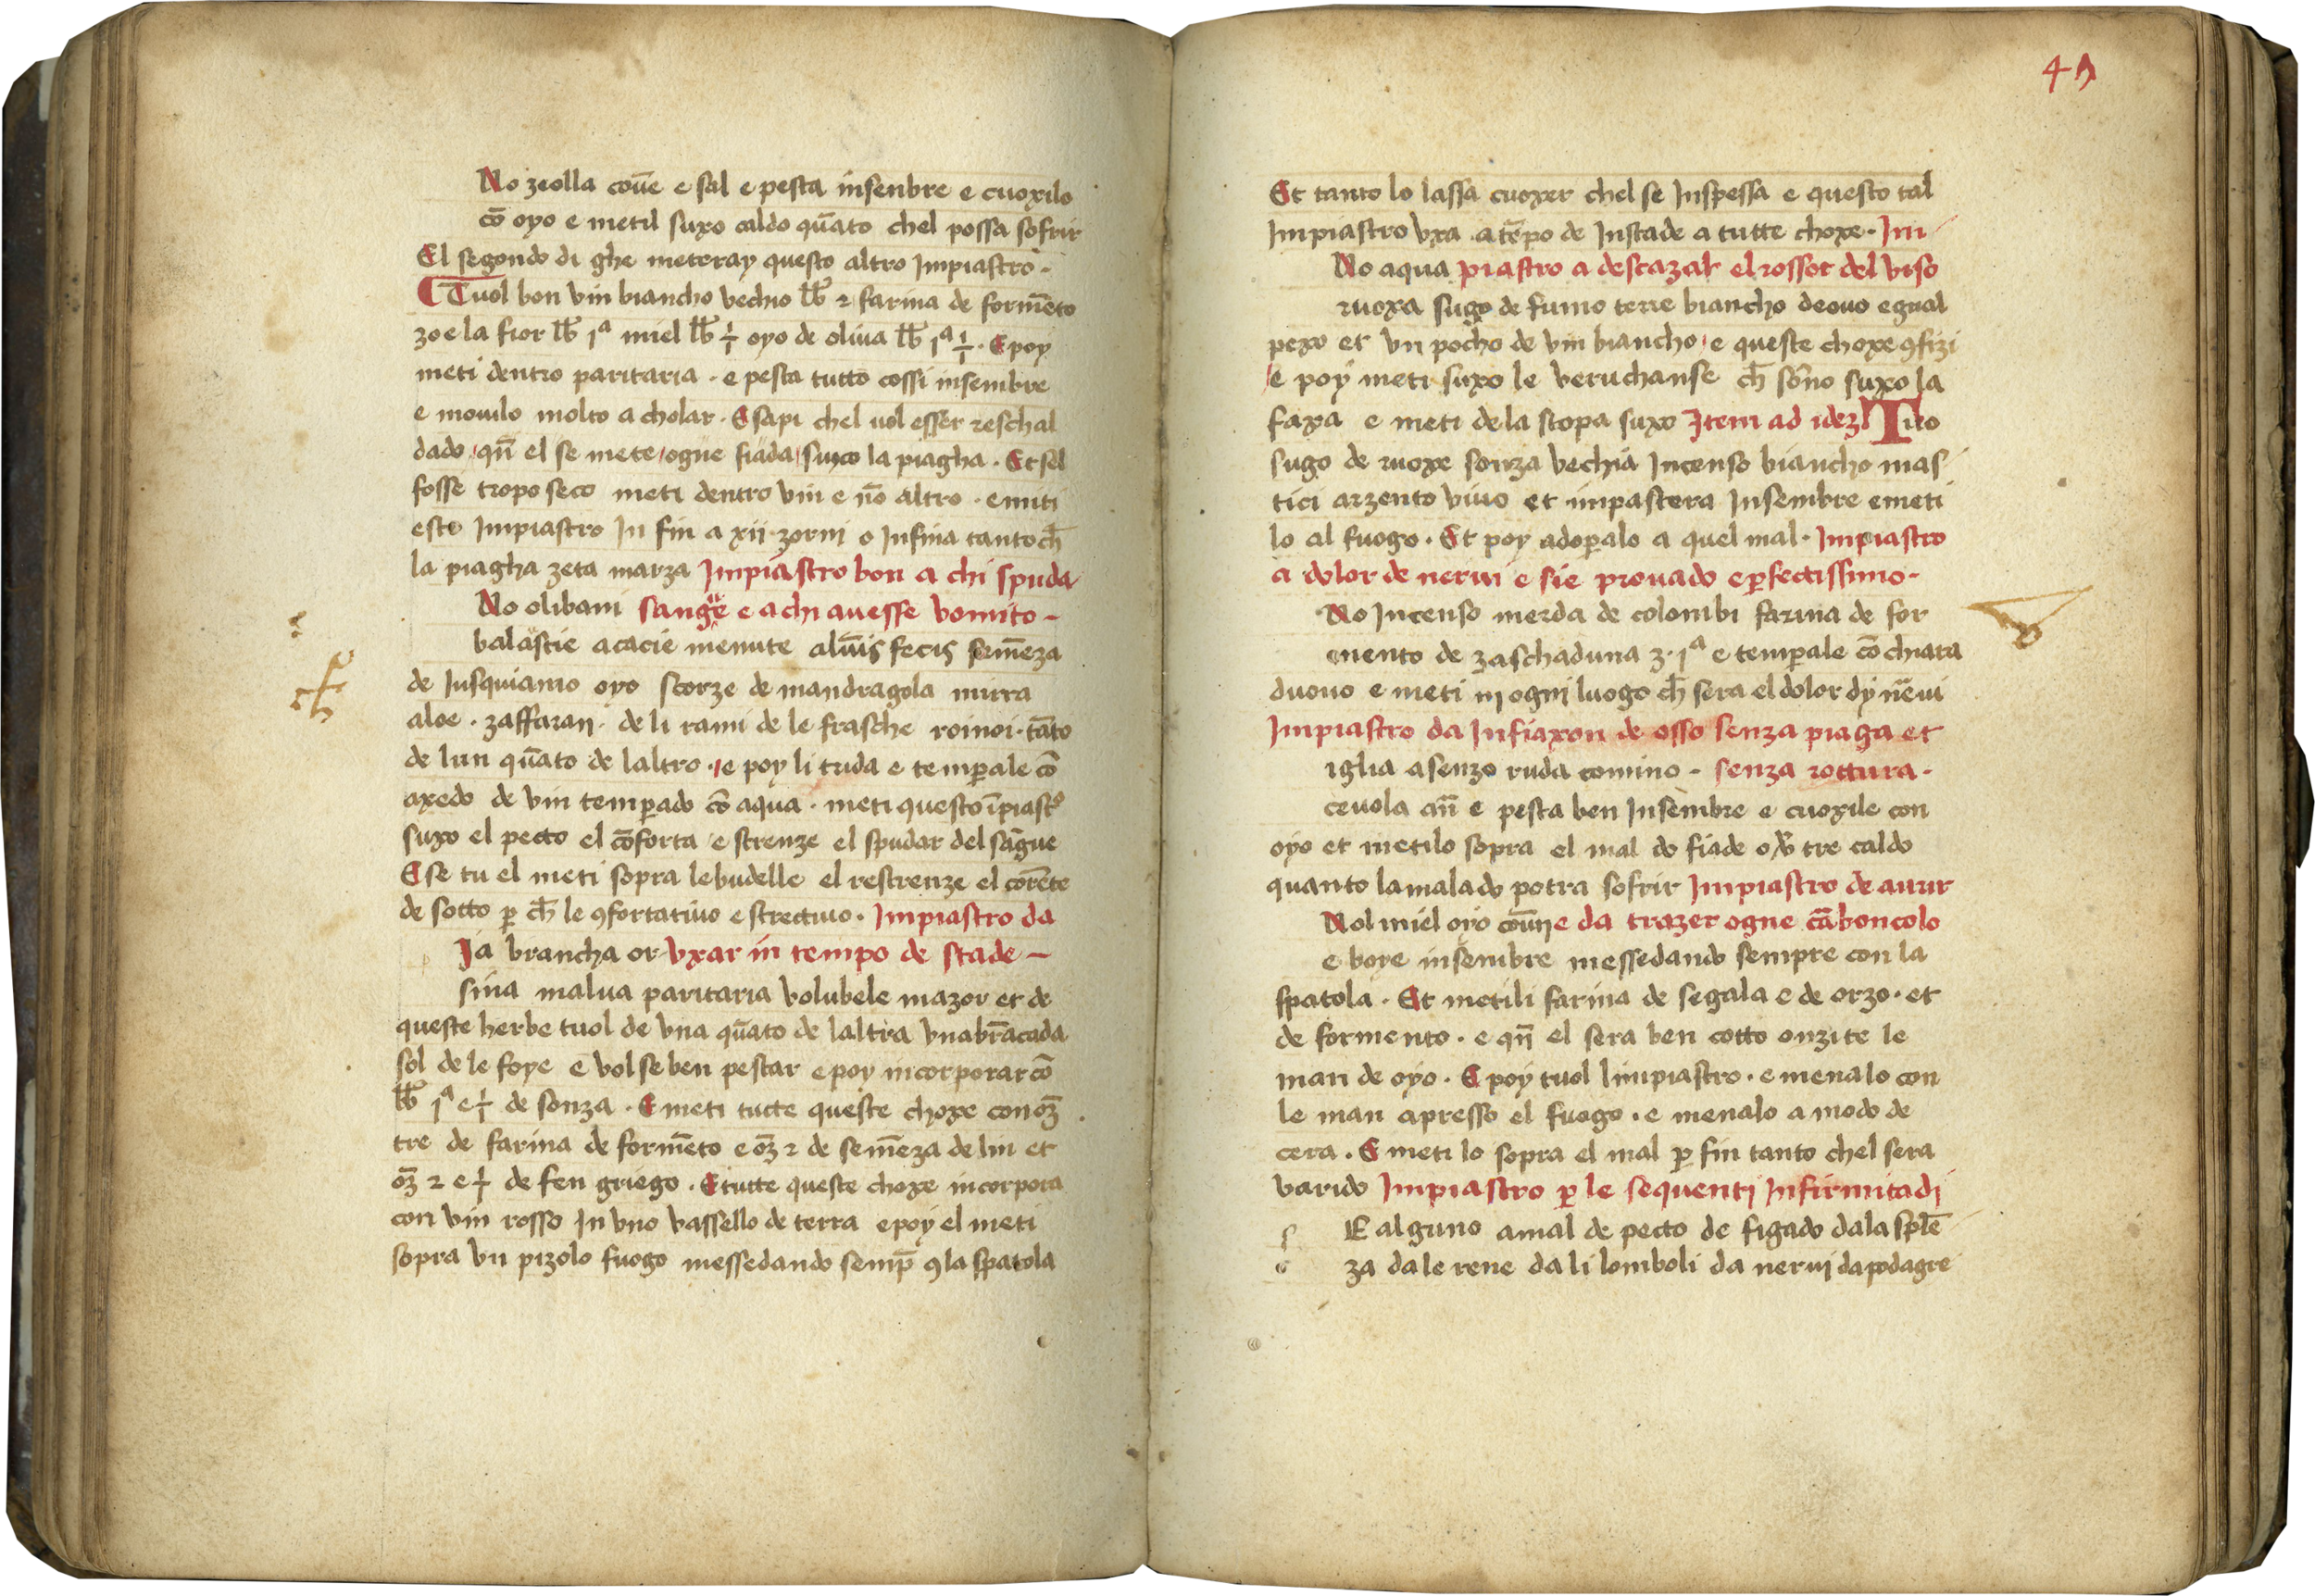 No zeolla coūe e sal e pesta insenbre e cuoxilo
cō oyo e metil suxo caldo quāto chel possa sofrir
El segondo di ghe meteray questo altro Impiastro.
Tuol bon vin biancho vechio lb̄ 2 farina de formēto
zoe la fior lb̄ 1ª miel lb̄ ½ oyo de oliua lb̄ 1ª ½. E poy
meti dentro paritaria. e pesta tutto cossi insembre
e mouilo molto a cholar. E sapi chel uol esser reschal
dado qn̄ el se mete ogne fiada suxo la piagha. Et sel
fosse tropo seco meti dentro vin e nō altro. e muti
esto Impiastro In fin a xii zorni o Infina tanto ch̄
la piagha zeta marza Impiastro bon a chi spuda
No olibani sangue e a chi auesse vomito
balastie acacie menute alūis fecis semēza
de Iusquiamo oyo scorze de mandragola mirra
aloe. zaffaran. de li rami de le frasche roinoi. tāto
de lun quāto de laltro. e poy li trida e temperale cō
axedo de vin temperado cō aqua. meti questo īpiastº
suxo el pecto el cōforta e strenze el spudar del sāgue
E se tu el meti sopra lebudelle el restrenze el corēte
de sotto p ch̄ le 9fortatiuo e strectiuo. Impiastro da
Ia brancha or vxar in tempo de stade
sina malua paritaria volubele mazor et de
queste herbe tuol de vna quāto de laltra vnabrācada
sol de le foye e vol se ben pestar e poy incorporar cō
lb̄ 1ª e ½ de sonza. E meti tutte queste choxe con oz̄
tre de farina de formēto e oz̄ 2 de semēza de lin et
oz̄ 2 e ½ de fen griego. E tutte queste choxe incorpora
con vin rosso In vno vassello de terra e poy el meti
sopra vn pizolo fuogo messedando semp̄ 9 la spatola
49
Et tanto lo lassa cuoxer chel se Inspessa e questo tal
Impiastro vxa a tēpo de Instade a tutte choxe. Im
No aqua piastro a descazar el rossor del viso
ruoxa sugo de fumo terre biancho deouo egual
pexo et vn pocho de vin biancho e queste choxe 9fizi
e poy meti suxo le veruchanse ch̄ sōno suxo la
faxa e meti de la stopa suxo Item ad idez Tuo
sugo de ruoxe sonza vechia Incenso biancho mas
tici arzento viuo et impastera Insembre e meti
lo al fuogo. Et poy adoperalo a quel mal. Impiastro
a dolor de nerui e sie prouado e perfectissimo.
No Incenso merda de colombi farina de for
mento de zaschaduna ʒ. 1ª e temperale cō chiara
duouo e meti in ogni luogo ch̄ sera el dolor dy nēui
Impiastro da Infiaxon de osso senza piaga et
iglia asenzo ruda comino. senza rottura.
ceuola an̄ e pesta ben Insembre e cuoxile con
oyo et metilo sopra el mal do fiade o tre caldo
quanto lamalado potra sofrir Impiastro de aurir
Nol miel oyo coūne da trazer ogne cāboncolo
e boye insembre messedando sempre con la
spatola. Et metili farina de segala e de orzo. et
de formento. e qn̄ el sera ben cotto onzite le
man de oyo. E poy tuol limpiastro. e menalo con
le man apresso el fuogo. e menalo a modo de
cera. E meti lo sopra el mal p fin tanto chel sera
varido Impiastro p le sequenti Infirmitadi
s E alguno a mal de pecto de figado dala splē
za dale rene da li lomboli da nerui da podagre